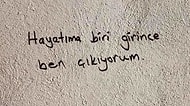 Hayatıma biri girince
ben çıkıyorum.